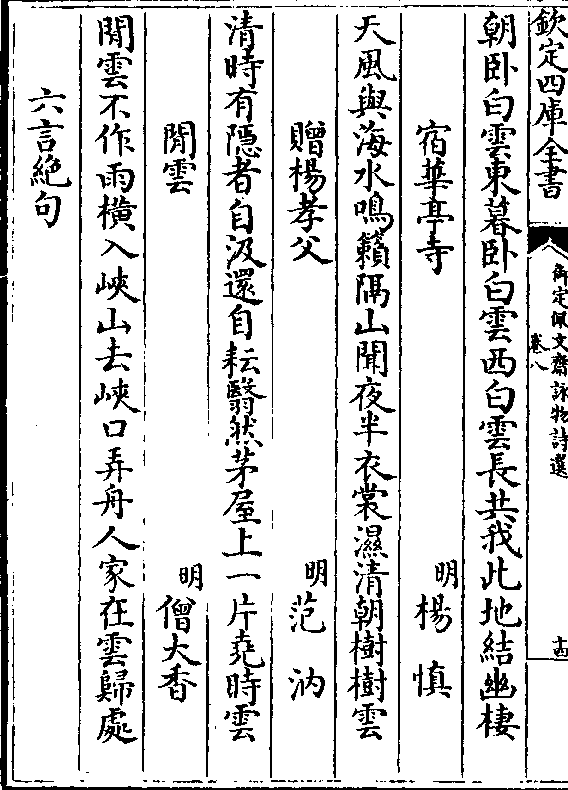 欽定四庫全書
御定佩文齋詠物詩選
卷八
十四
朝卧白雲東暮卧白雲西白雲長共我此地結幽棲
宿華亭寺
明 楊慎
天風與海水鳴籟隔山聞夜半衣裳濕清朝樹樹雲
贈楊孝父
明 范汭
清時有隱者自汲還自耘翳然茅屋上一片堯時雲
閒雲
明 僧大香
閒雲不作雨橫入峽山去峽口弄舟人家在雲歸處
六言絶句